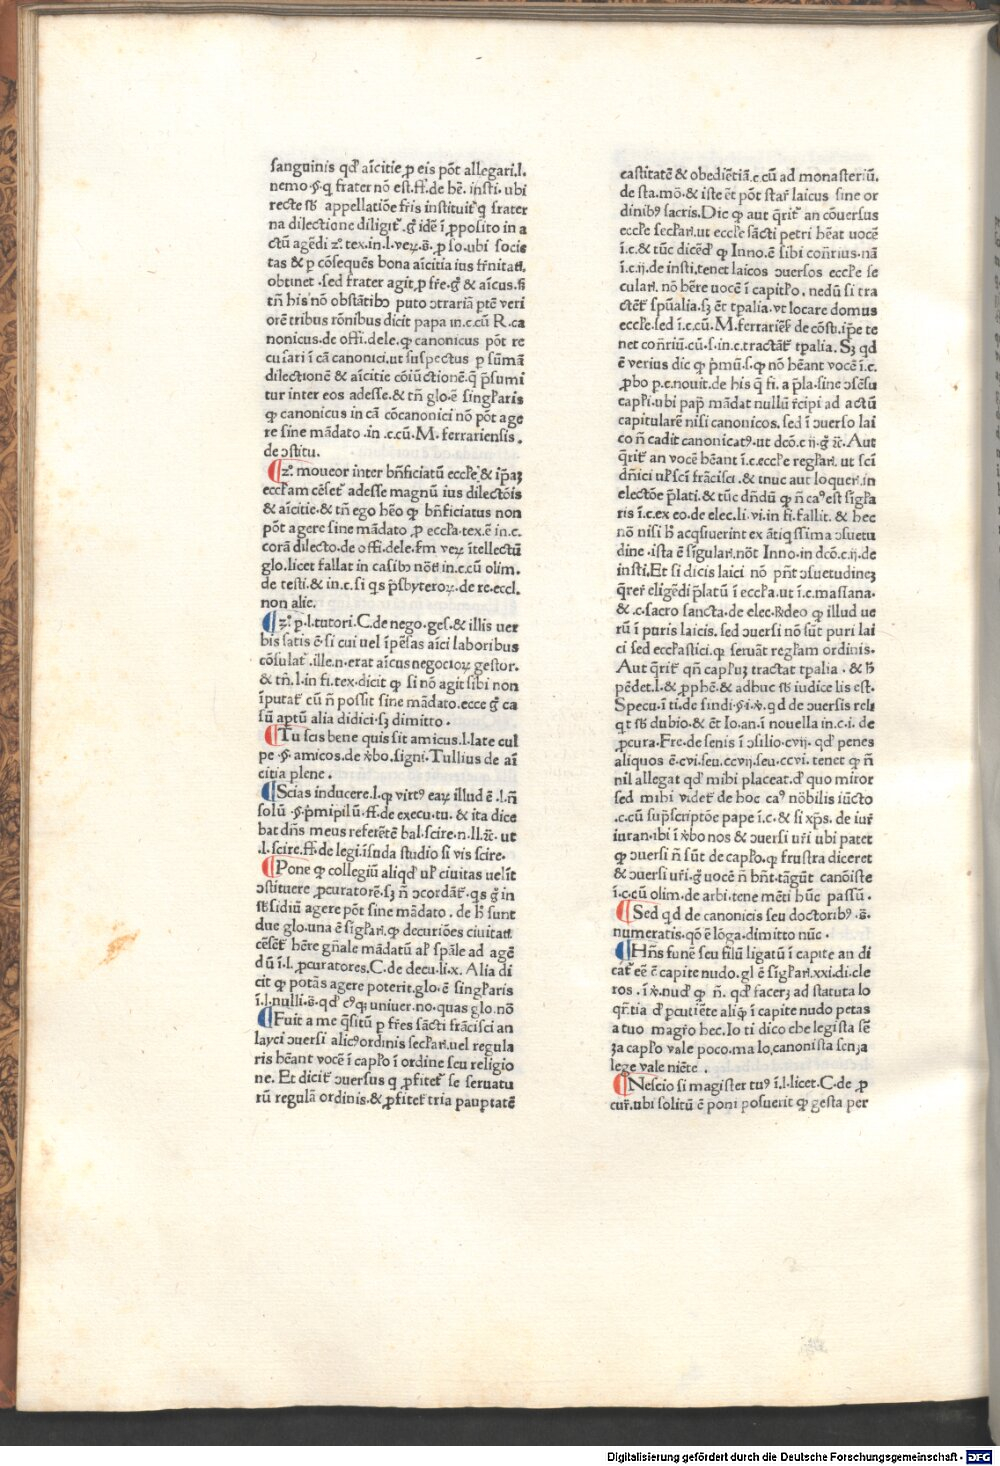 sanguinis qd̕ aīcitie ꝓ eis pōt allegari.l.
nemo.§.q frater nō est.ff.de hē. insti. ubi
recte sb̄ appellatiōe fr̄is instituit̕ q̄ frater
na dilectione diligit̕. g̕ idē ī ꝓposito in a
ctū agēdi z°. tex.in.l.veꝝ.§. ꝓ so.ubi socie
tas & p cōsequēs bona aīcitia ius fr̄nitatꝪ.
obtinet .sed frater agit ꝓ fr̄e.g̕ & aīcus.ſi
tn̄ his nō obstātibꝰ puto ↄtrariā ptē veri
orē tribus rōnibus dicit papa in.c.cū R.ca
nonicus.de offi.dele.ꝙ canonicus pōt re
cusari ī cā canonici.ut suspectus ꝓ sūmā
dilectionē & aīcitie cōiūctionē.q̄ p̄sumi
tur inter eos adesse.& tn̄ glo.ē singl̕aris
ꝙ canonicus in cā cōcanonici nō pōt age
re sine mādato .in .c.cū.M. ferrariensis .
de ↄstitu.
z°. moveor inter bn̄ficiatū eccl̕e & ip̄aꝫ
eccl̕am cēset̕ adesse magnū ius dilectōis
& aīcitie.& tn̄ ego hēo ꝙ bn̄ficiatus non
pōt agere sine mādato ꝓ eccl̕a.tex.ē in.c.
corā dilecto.de offi.dele.ſm veꝝ ītellectū
glo.licet fallat in casibꝰ nōtꝪ in.c.cū olim.
de testi.& in.c.si qs p̄sbyteroꝝ.de re.eccl.
non alie.
z°. p.l.tutori.C.de nego.ges.& illis ver
bis satis ē.si cui uel īpēsas aīci laboribus
cōsulat̕.ille.n.erat aīcus negocioꝝ gestor.
& tn̄.l.in fi.tex.dicit ꝙ si nō agit sibi non
īputat̕ cū n̄ possit sine mādato.ecce g̕ ca
sū aptū alia didici.sꝫ dimitto .
Tu scis bene quis sit amicus.l.late cul
pe .§. amicos.de v̄bo.signi. Tullius de aī
citia plene .
Scias inducere.l.ꝙ virtꝰ eaꝝ illud ē .l.n̄
solū .§.p̄mipilū.ff.de execu.tu. & ita dice
bat dn̄s meus referētē bal.scire.n.ll.zc̄. ut
.l.scire.ff.de legi.īsuda studio si vis scire.
Pone ꝙ collegiū aliqd̕ ul̕ civitas uelit̕
ↄstituere ꝓcuratorē.sꝫ n̄ ↄcordāt̕.qs g̕ in
sb̄sidiū agere pōt sine mādato . de hͦ sunt
due glo.una ē sigl̕ari.ꝙ decuriōes civitatꝪ
cēsēt̕ hēre gn̄ale mādatū al̕ spāle ad agē
dū ī.l. ꝓcuratores.C.de decu.li.x. Alia di
cit ꝙ potās agere poterit.glo.ē singl̕aris
ī.l.nulli.§.qd̕ cꝰqꝫ univer.no.quas glo.nō
Fuit a me q̄sitū p fr̄es sācti frācisci an
layci ↄversi alicꝰ ordinis secl̕ari.uel regula
ris hēant vocē ī capl̕o ī ordine seu religio
ne. Et dicit̕ ↄversus q ꝓfitet̕ se servatu
rū regulā ordinis.& ꝓfitet̕ tria pauptatē
castitatē & obediētiā.c.cū ad monasteriū.
de sta.mō.& iste ēt pōt star̄ laicus sine or
dinibꝰ sacris.Dic ꝙ aut q̄rit̕ an cōversus
eccl̕e secl̕ari.ut eccl̕e sācti petri hēat uocē
ī.c.& tūc dicēd̕ ꝙ Inno.ē sibi con̄rius.nā
ī.c.ij.de insti.tenet laicos ↄversos eccl̕e se
culari. nō hēre uocē ī capitl̕o. nedū si tra
ctēt̕ sp̄ualia.sꝫ ēt tpalia.vt locare domus
eccl̕e.sed ī.c.cū. M.ferrariēs̄ de cōsti.ip̄e te
net con̄riū.cū.s.in.c.tractāt̕ tpalia. Sꝫ qd
ē verius dic ꝙ p̄mū.s.ꝙ nō hēant vocē ī.c.
ꝓbo p.c.novit.de his q̄ fi. a p̄la.sine ↄsēsu
capl̕i.ubi pap̄ mādat nullū r̄cipi ad actū
capitularē nisi canonicos. sed ī ↄverso lai
co n̄ cadit canonicatꝰ.ut dcō.c ij.g̕ zc̄. Aut
q̄rit̕ an vocē hēant ī.c.eccl̕e regl̕ari. ut scī
dn̄ici ul̕ scī frācisci .& tnuc aut loquer̄.in
electōe p̄lati.& tūc dn̄dū ꝙ n̄ caꝰ est sigl̕a
ris ī.c.ex eo.de elec.li.vi.in fi.fallit. & hec
nō nisi hͦ acqsiverint ex ātiqssima ↄsuetu
dine .ista ē sigulari.nōt Inno.in dcō.c.ij.de
insti.Et si dicis laici nō pn̄t ↄsuetudineꝫ
q̄rer̄ eligēdi p̄latū ī eccl̕a.ut ī.c.massana.
& .c.sacro sancta.de elec.Rn̄deo ꝙ illud ve
rū ī puris laicis. sed ↄversi nō sūt puri lai
ci sed eccl̕astici.ꝙ servāt regl̕am ordinis.
Aut q̄rit̕ qn̄ capl̕uꝫ tractat tpalia . & hͦ
pēdet.l.& ꝓphē.& adhuc sb̄ iudice lis est.
Specu.ī ti.de sindi.§.i.ꝟ.qd de ↄversis reli
q.t sb̄ dubio.& ēt Io.an.ī novella in.c.i. de
ꝓcura.Fre.de senis ī ↄsilio.cvij. qd̕ penes
aliquos ē.cvi.seu.ccvij.seu.ccvi. tenet ꝙ n̄
nil allegat qd̕ mihi placeat.d̕ quo miror
sed mihi videt̕ de hoc caꝰ nōbilis iūcto
.c.cū sup̄scriptōe pape ī.c.& si xp̄s. de iur̄
iuran.ibi ī v̄bo nos & ↄversi ur̄i ubi patet
ꝙ ↄversi n̄ sūt de capl̕o.ꝙ frustra diceret
& ↄversi ur̄i.g̕ uocē n̄ hn̄t.tāgūt canōiste
ī.c.cū olim.de arbi.tene mēti hūc passū .
Sed qd de canonicis seu doctoribꝰ .§.
numeratis.qō ē lōga.dimitto nūc .
Hn̄s funē seu filū ligatū ī capite an di
cat̕ eē ē capite nudo.gl ē sigl̕ari.xxi.di.cle
ros . ī ꝟ.nud̕ ꝙ n̄. qd̕ facerꝫ ad statuta lo
qn̄.tia d̕ pcutiēte aliq̄ ī capite nudo petas
a tuo magr̄o hec.Io ti dico che legista sē
ꝫa capl̕o vale poco.ma lo canonista senꝫa
lege vale niēte .
Nescio si magister tuꝰ ī.l.licet.C.de ꝓ
cur̄.ubi solitū ē poni posuerit ꝙ gesta per
Digitalisierung gefördert durch die Deutsche Forschungsgemeinschaft - DFG